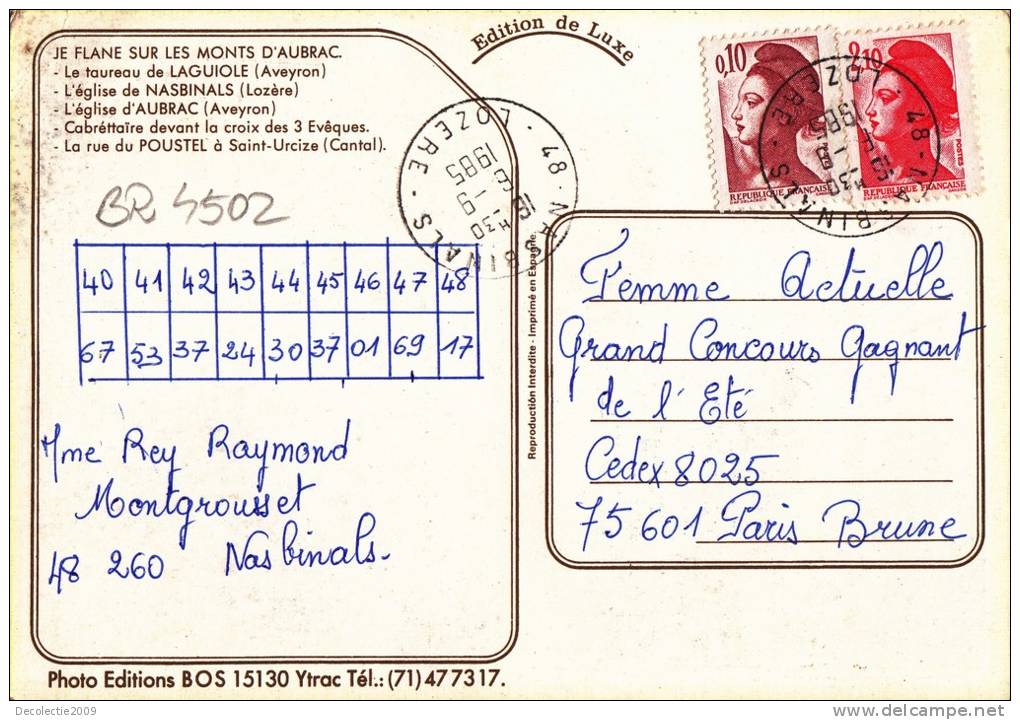 Edition de Luxe
JE FLANE SUR LES MONTS D'AUBRAC.
- Le taureau de LAGUIOLE (Aveyron)
- L'église de NASBINALS (Lozère)
- L'église d'AUBRAC (Aveyron)
- Cabréttaïre devant la croix des 3 Evêques.
- La rue du POUSTEL à Saint-Urcize (Cantal).
BR 4502
0,10
REPUBLIQUE FRANÇAISE
2,10
POSTES
REPUBLIQUE FRANÇAISE
48 - NASBINALS - LOZERE
15 H30
1985
48 - NASBINALS - LOZERE
15 H30
1985
40 41 42 43 44 45 46 47 48
67 53 37 24 30 37 01 69 17
Mme Rey Raymond
Montgrousset
48 260 Nasbinals.
Reproduction Interdite - Imprimé en Espagne.
Femme Actuelle
Grand Concours Gagnant
de l'Eté
Cedex 8025
75601 Paris Brune
Photo Editions BOS 15130 Ytrac Tél.: (71) 47 73 17.
Decolectie2009
delcampe.net